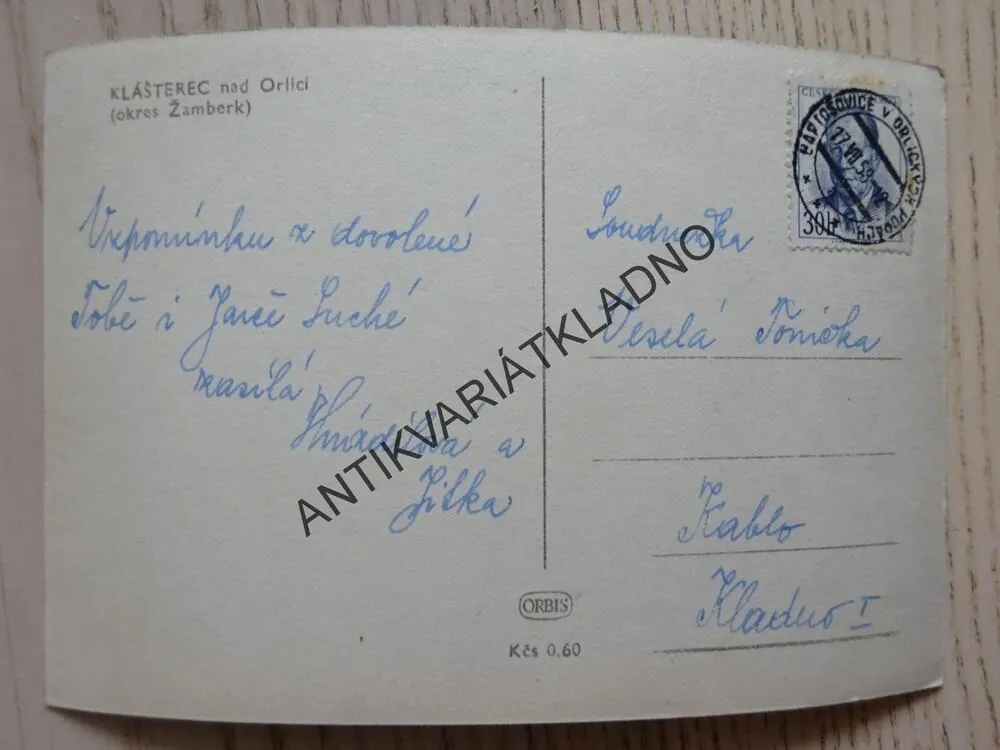 KLÁŠTEREC nad Orlicí
(okres Žamberk)
Vzpomínku z dovolené
Tobě i Jarče Suché
zasílá
a
Jitka
ORBIS
Kčs 0,60
BARTOŠOVICE V ORLICKÝCH HORÁCH
17.VII.53
30h
Soudružka
Veselá Tonička
Kablo
Kladno I
ANTIKVARIÁTKLADNO